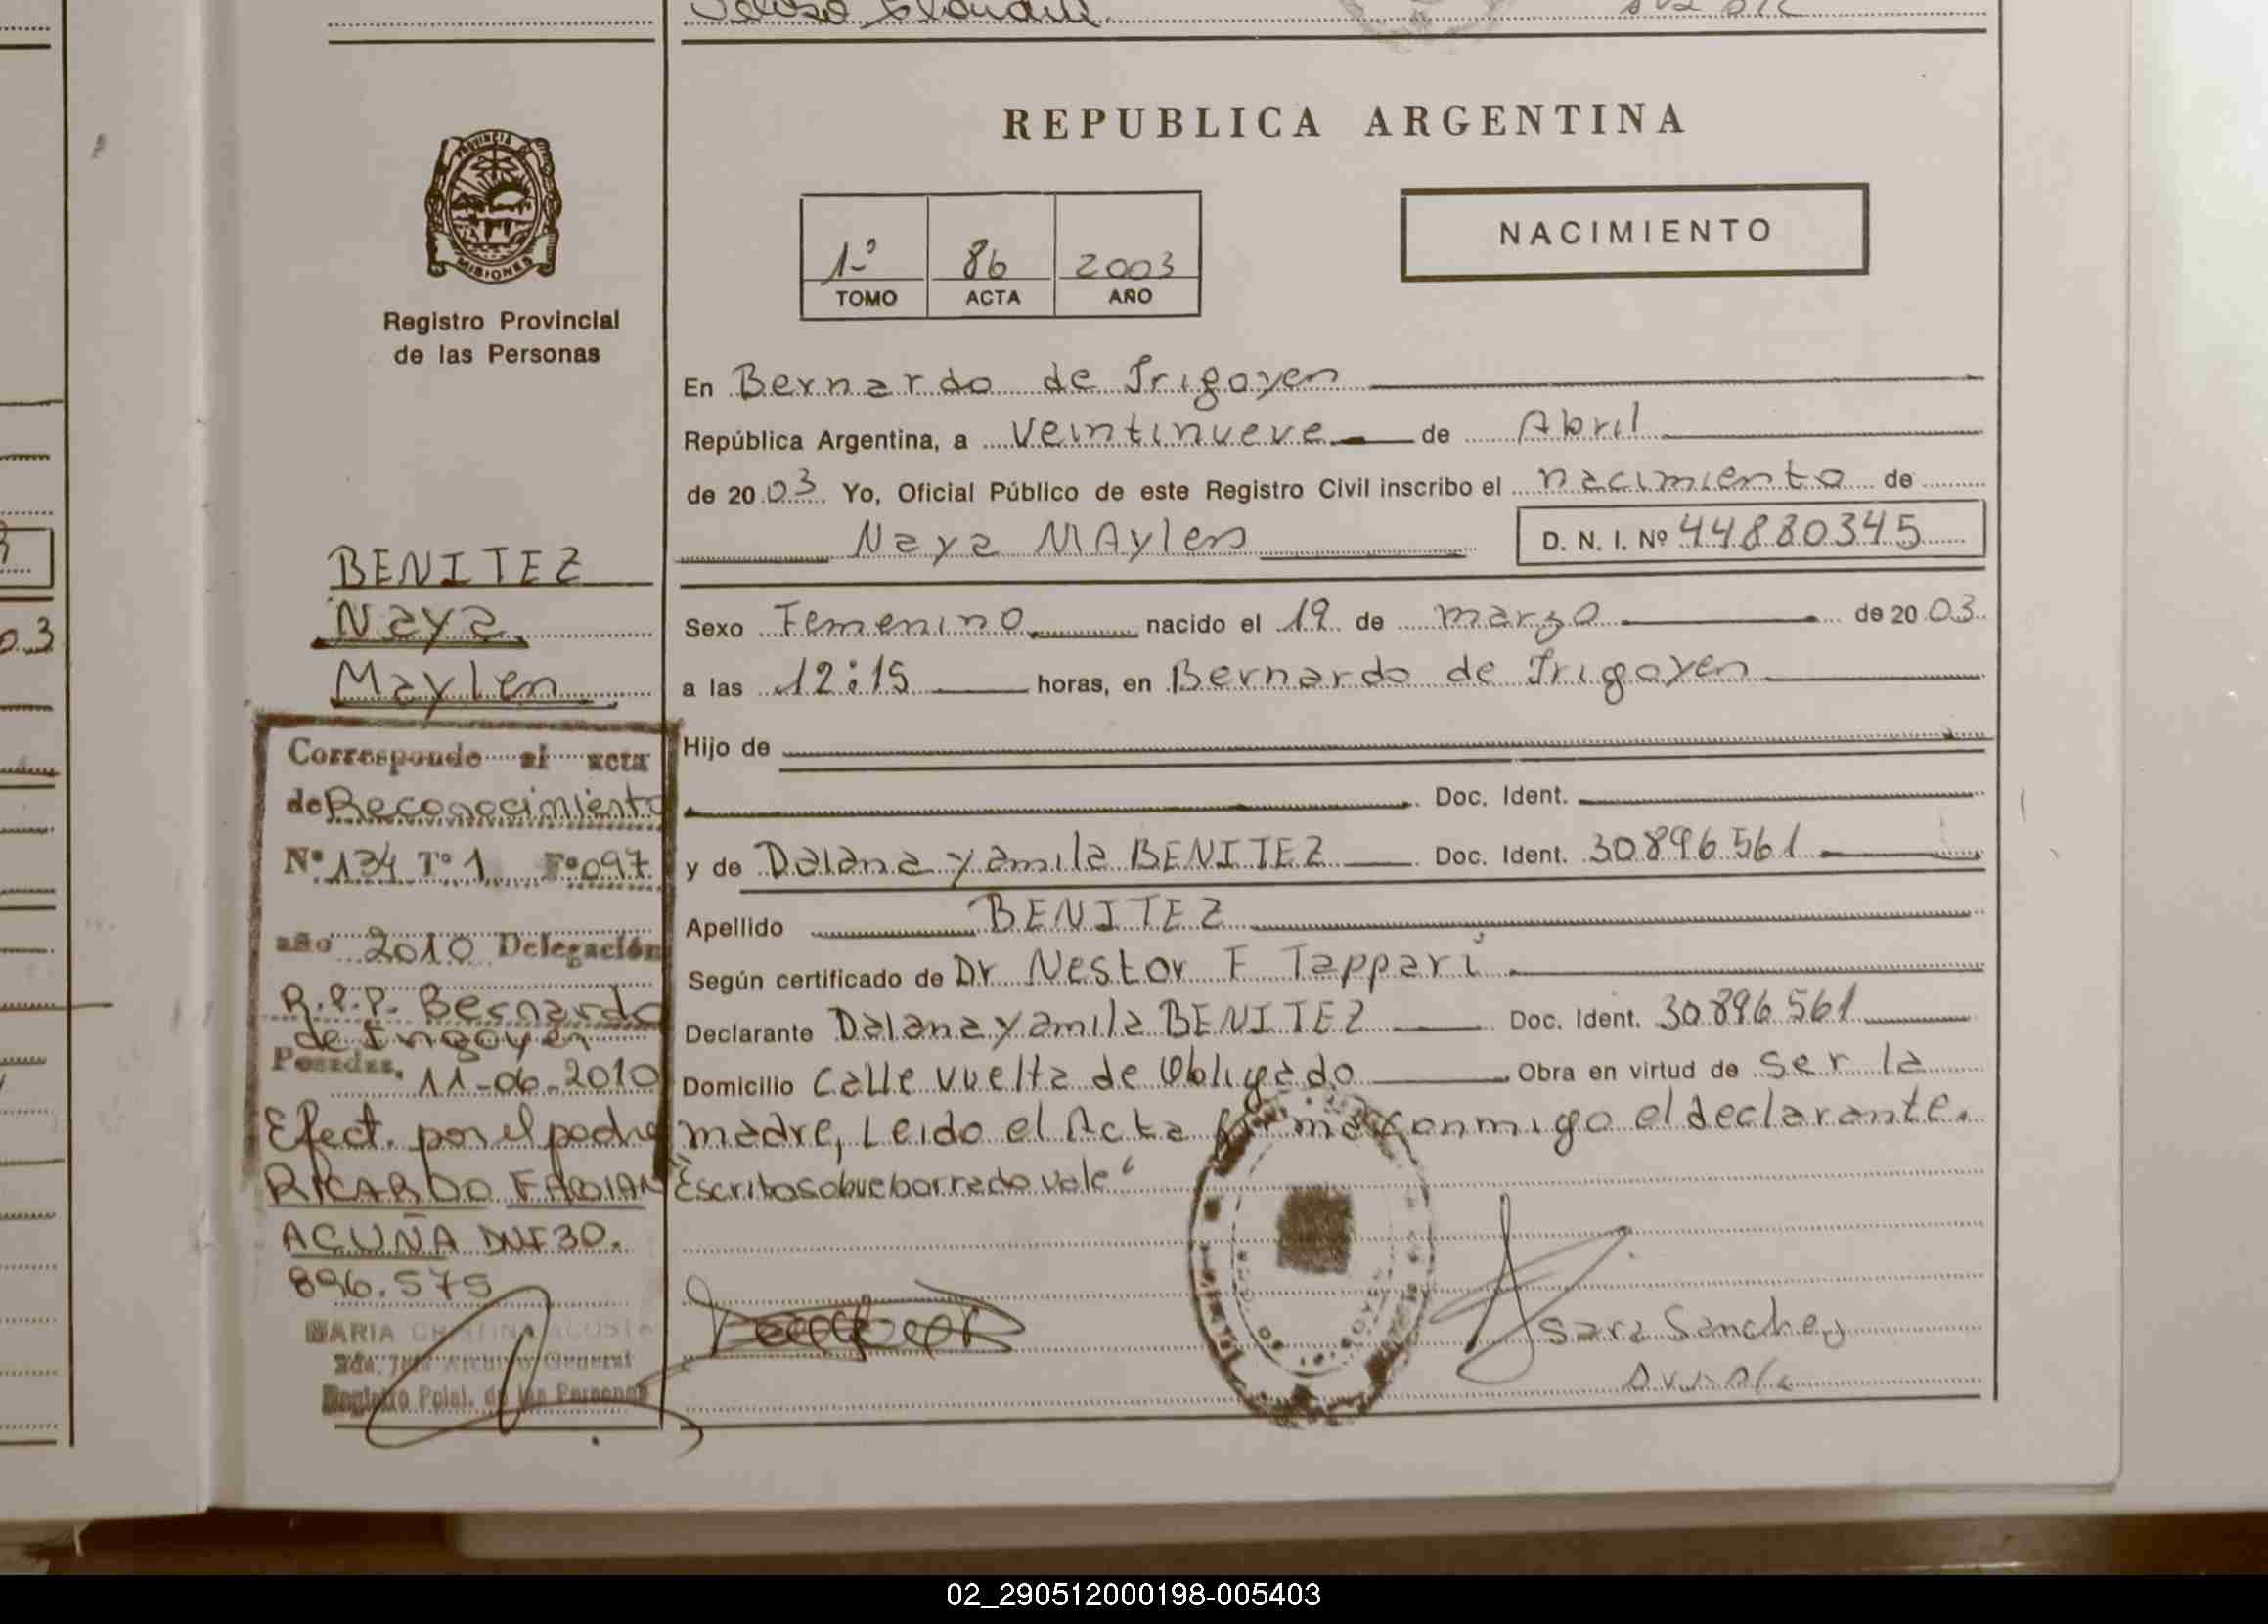 REPUBLICA ARGENTINA
PROVINCIA DE
MISIONES
Registro Provincial
de las Personas
1º 86 2003
TOMO ACTA AÑO
NACIMIENTO
En Bernardo de Irigoyen
República Argentina, a veintinueve de Abril
de 2003 Yo, Oficial Público de este Registro Civil inscribo el nacimiento de
Naya MAylen D. N. I. Nº 44880345
Sexo Femenino nacido el 19 de marzo de 2003
a las 12:15 horas, en Bernardo de Irigoyen
Hijo de
Doc. Ident.
y de Daiana Yamila BENITEZ Doc. Ident. 30896561
Apellido BENITEZ
Según certificado de Dr Nestor F Tappari
Declarante Daiana Yamila BENITEZ Doc. Ident. 30896561
Domicilio Calle Vuelta de Obligado Obra en virtud de ser la
madre, Leido el Acta firma conmigo el declarante.
"Escrito sobre borrado vale"
Sara Sanchez
BENITEZ
Naya
Maylen
Corresponde al acta
de Reconocimiento
Nº 134 Tº 1 Fº 097
año 2010 Delegación
R.P.P. Bernardo
de Irigoyen
Posadas, 11-06-2010
Efect. por el padre
RICARDO FABIAN
ACUÑA DNI 30.
896.575
MARIA CRISTINA ACOSTA
2da. Jefe Archivo General
Registro Pcial. de las Personas
02_290512000198-005403